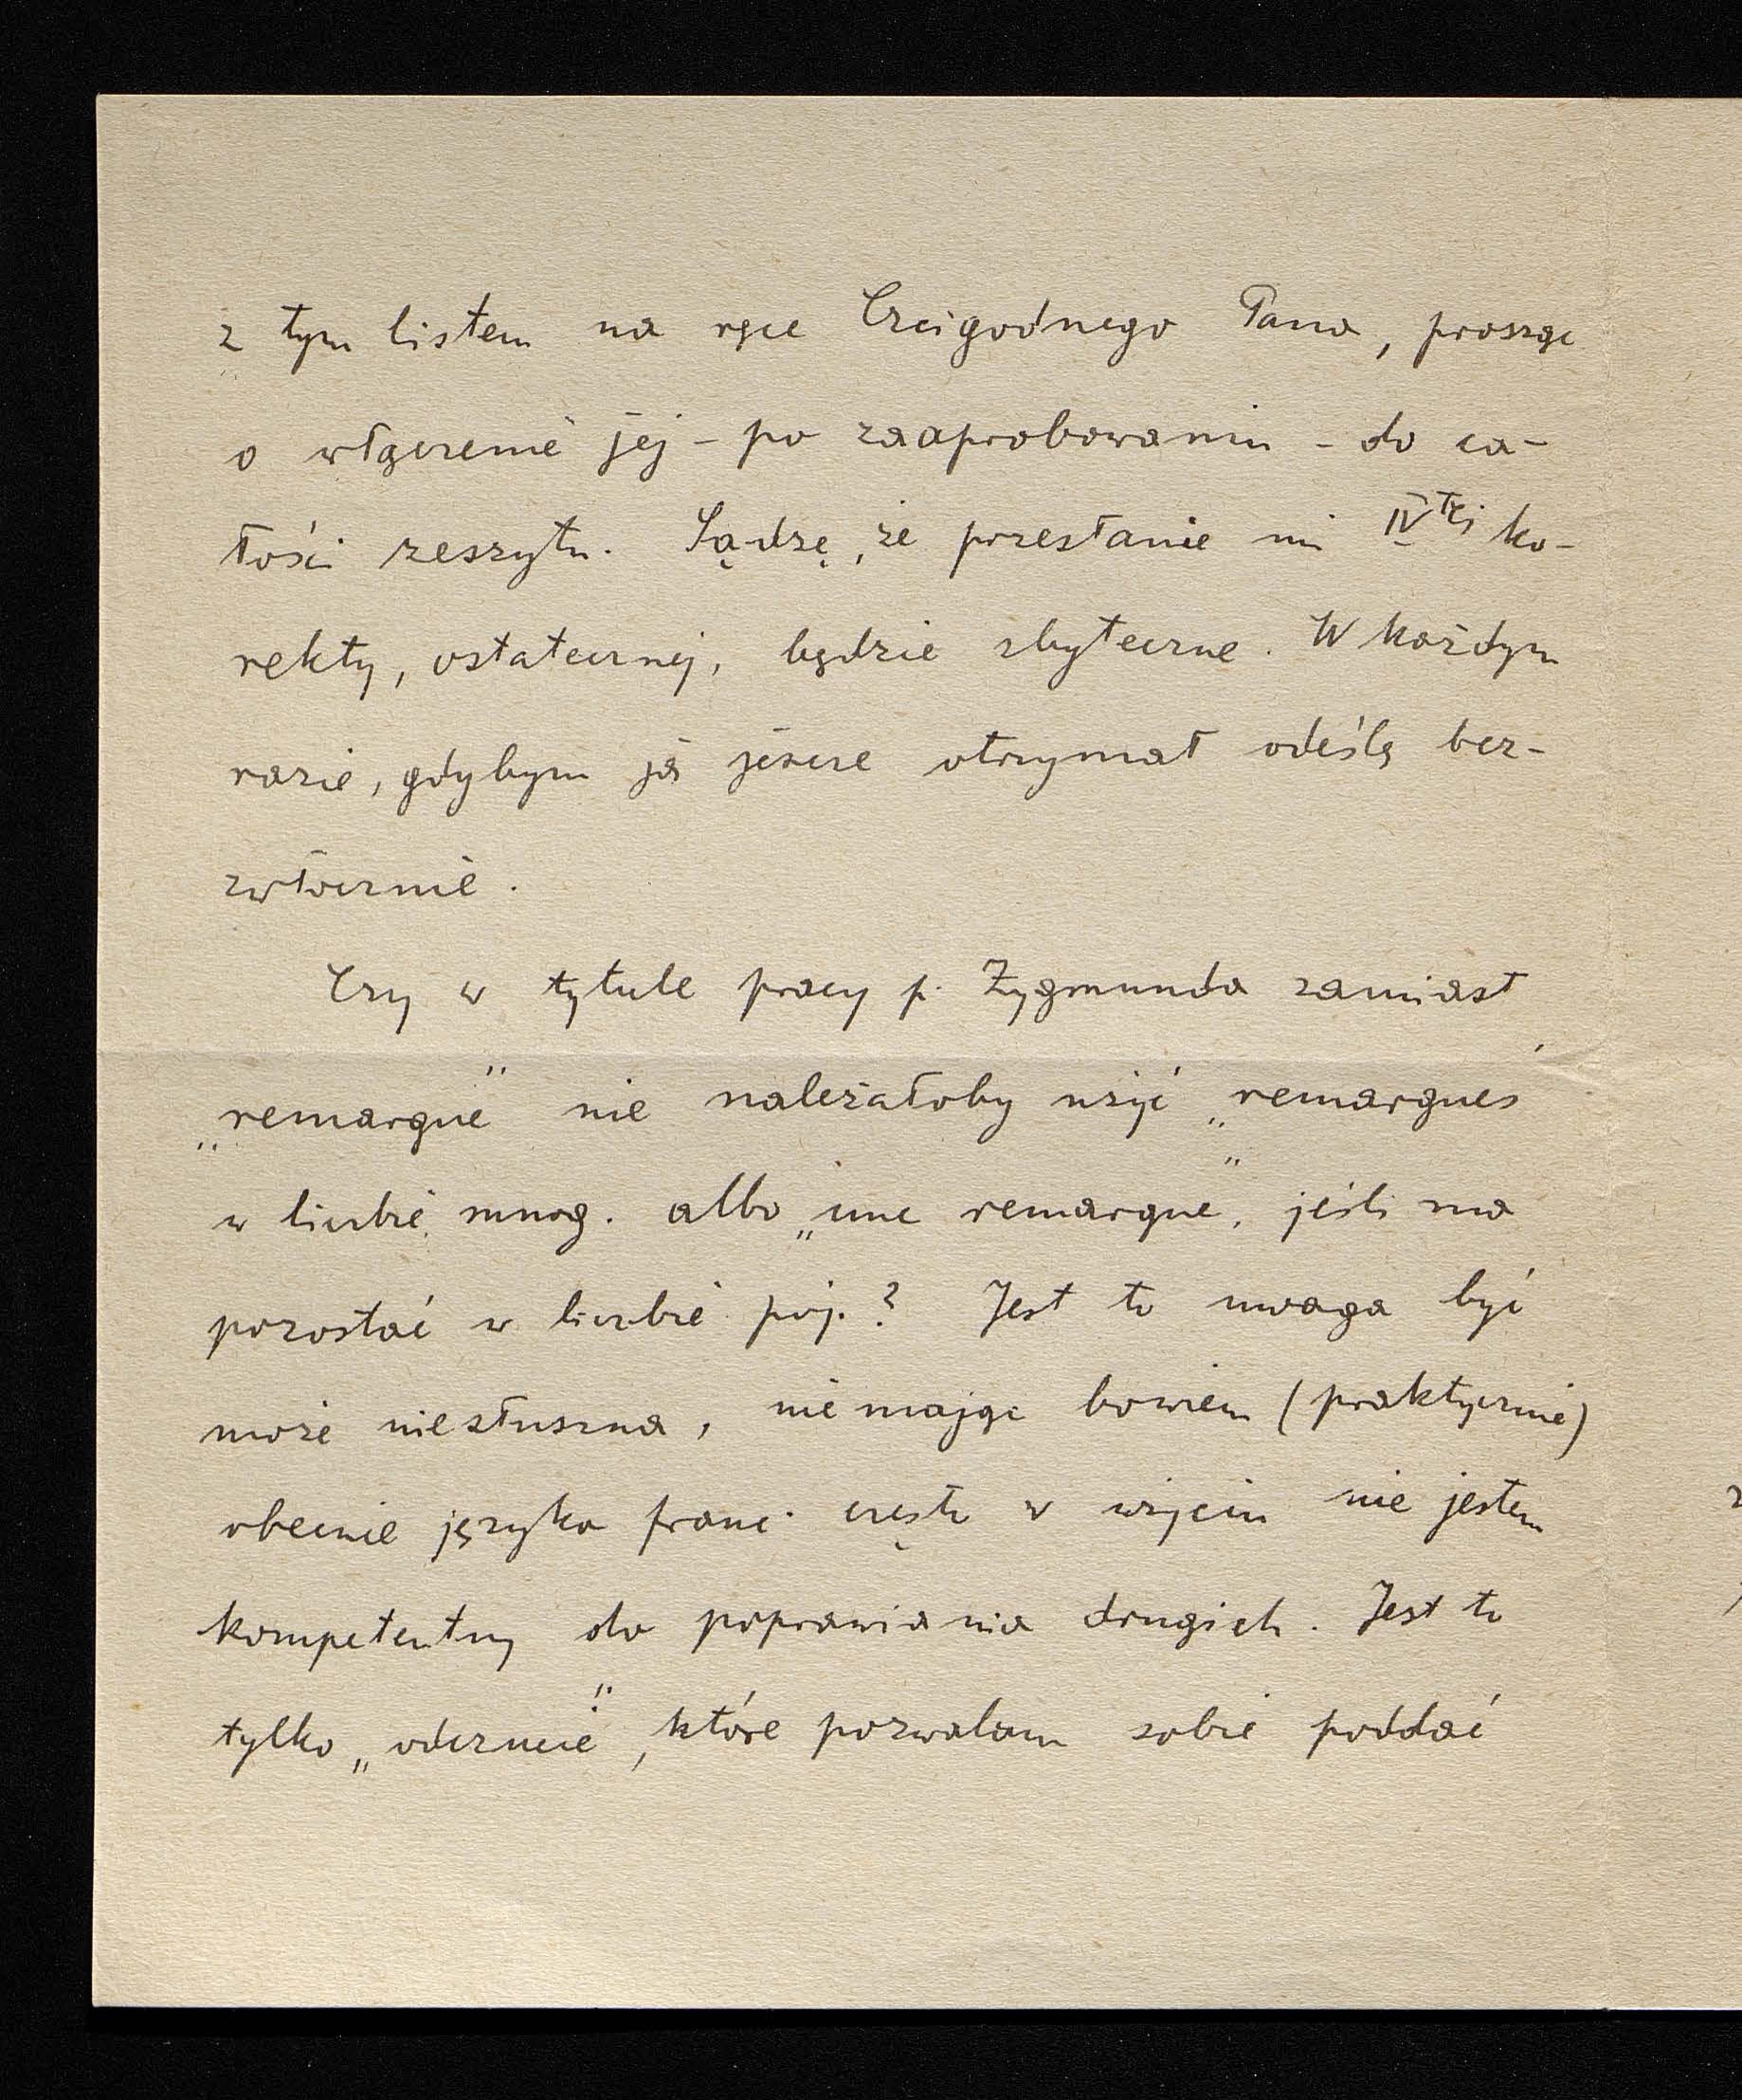 z tym listem na ręce Czcigodnego Pana, prosząc
o włączenie jej – po zaaprobowaniu – do ca-
łości zeszytu. Sądzę, że przesłanie mi IV tej ko-
rekty, ostatecznej, będzie zbyteczne. W każdym
razie, gdybym ją jeszcze otrzymał odeślę bez-
zwłocznie.
Czy w tytule pracy p. Zygmunda zamiast
„remarque” nie należałoby użyć „remarques”
w liczbie mnog. albo „une remarque”, jeśli ma
pozostać w liczbie poj.? Jest to uwaga być
może niesłuszna, nie mając bowiem (praktycznie)
obecnie języka franc. często w użyciu nie jestem
kompetentny do poprawiania drugich. Jest to
tylko „odczucie”, które pozwalam sobie poddać